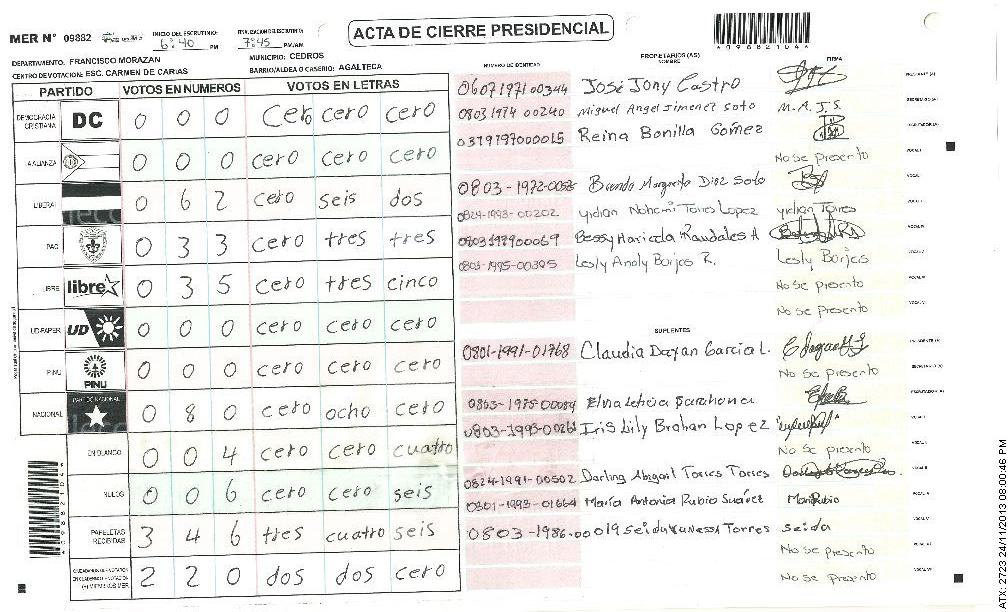 MER N° 09882
INICIO DEL ESCRUTINIO: 6:40 PM
FINALIZACION DEL ESCRUTINIO: 7:45 PM/AM
ACTA DE CIERRE PRESIDENCIAL
DEPARTAMENTO: FRANCISCO MORAZAN
MUNICIPIO: CEDROS
CENTRO DE VOTACION: ESC. CARMEN DE CARIAS
BARRIO/ALDEA O CASERIO: AGALTECA
PARTIDO VOTOS EN NUMEROS VOTOS EN LETRAS
DEMOCRACIA CRISTIANA DC 0 0 0 cero cero cero
LA ALIANZA 0 0 0 cero cero cero
LIBERAL 0 6 2 cero seis dos
PAC 0 3 3 cero tres tres
LIBRE libre 0 3 5 cero tres cinco
UD-FAPER UD 0 0 0 cero cero cero
PINU PINU 0 0 0 cero cero cero
NACIONAL PARTIDO NACIONAL 0 8 0 cero ocho cero
EN BLANCO 0 0 4 cero cero cuatro
NULOS 0 0 6 cero cero seis
PAPELETAS RECIBIDAS 3 4 6 tres cuatro seis
2 2 0 dos dos cero
NUMERO DE IDENTIDAD PROPIETARIOS (AS) NOMBRE FIRMA
0607197100344 José Jony Castro
0803 1974 00240 Miguel Angel Jimenez Soto M.A.J.S.
0319197000015 Reina Bonilla Gómez
No se presento
0803-1972-0052 Brenda Margarita Diaz Soto
0824-1993-00202 yidian Nohemi Torres Lopez yidian Torres
0803197900069 Bessy Maricela Raudales A
0803-1995-00395 Lesly Anoly Borjas R. Lesly Borjas
No se presento
No se presento
SUPLENTES
0801-1991-01768 Claudia Dayan Garcia L.
No se presento
0803-1975-00084 Elvia Leticia Barahona
0803-1993-00261 Iris Lily Brohan Lopez
No se presento
0824-1991-00502 Darling Abigail Torres Torres
0801-1993-01664 María Antonia Rubio Suárez Mari Rubio
0803-1986-00019 Seida Vanessa Torres Seida
No se presento
No se presento
ATX: 2723 24/11/2013 08:00:46 PM